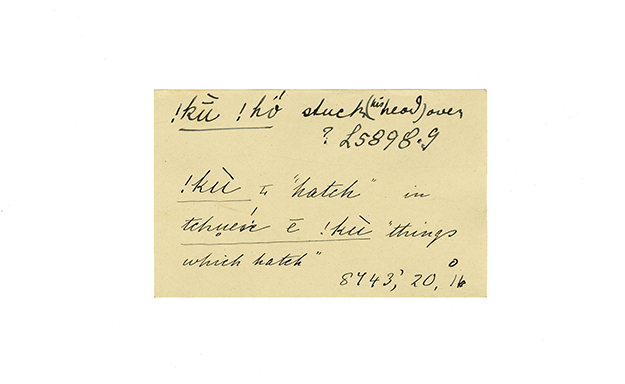 !kū !hö́ stuck (his head) over
? L5898.9
!kù to "hatch" in
tchu̥éń̥ ē !kù "things
which hatch"
8743', 20, 16